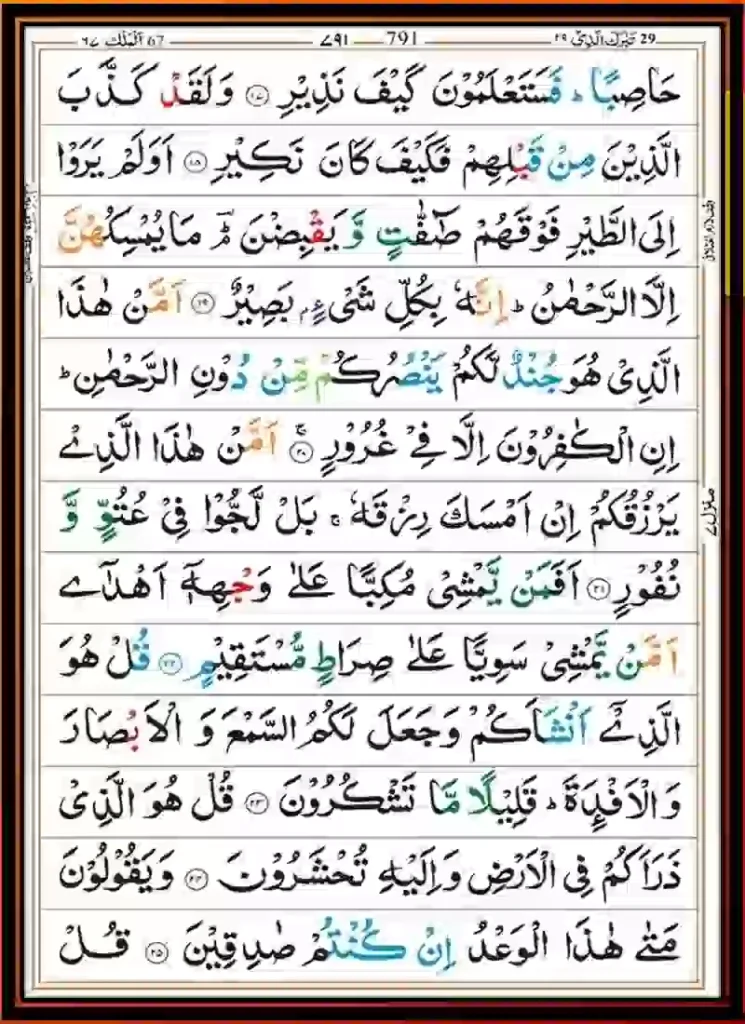 ٦٧ اَلْمُلْك 67 ٧٩١ — 791 ٢٩ تَبٰرَكَ الَّذِیْ 29
حَاصِبًا ؕ فَسَتَعْلَمُوْنَ كَیْفَ نَذِیْرِ ۝۱۷ وَ لَقَدْ كَذَّبَ
الَّذِیْنَ مِنْ قَبْلِهِمْ فَكَیْفَ كَانَ نَكِیْرِ ۝۱۸ اَوَلَمْ یَرَوْا
اِلَی الطَّیْرِ فَوْقَهُمْ صٰٓفّٰتٍ وَّ یَقْبِضْنَ ؔۘ مَا یُمْسِكُهُنَّ
اِلَّا الرَّحْمٰنُ ؕ اِنَّهٗ بِكُلِّ شَیْءٍۭ بَصِیْرٌ ۝۱۹ اَمَّنْ هٰذَا
الَّذِیْ هُوَ جُنْدٌ لَّكُمْ یَنْصُرُكُمْ مِّنْ دُوْنِ الرَّحْمٰنِ ؕ
اِنِ الْكٰفِرُوْنَ اِلَّا فِیْ غُرُوْرٍ ۝۲۰ۚ اَمَّنْ هٰذَا الَّذِیْ
یَرْزُقُكُمْ اِنْ اَمْسَكَ رِزْقَهٗ ۚ بَلْ لَّجُّوْا فِیْ عُتُوٍّ وَّ
نُفُوْرٍ ۝۲۱ اَفَمَنْ یَّمْشِیْ مُكِبًّا عَلٰی وَجْهِهٖۤ اَهْدٰۤی
اَمَّنْ یَّمْشِیْ سَوِیًّا عَلٰی صِرَاطٍ مُّسْتَقِیْمٍ ۝۲۲ قُلْ هُوَ
الَّذِیْۤ اَنْشَاَكُمْ وَ جَعَلَ لَكُمُ السَّمْعَ وَ الْاَبْصَارَ
وَ الْاَفْـِٕدَةَ ؕ قَلِیْلًا مَّا تَشْكُرُوْنَ ۝۲۳ قُلْ هُوَ الَّذِیْ
ذَرَاَكُمْ فِی الْاَرْضِ وَ اِلَیْهِ تُحْشَرُوْنَ ۝۲۴ وَ یَقُوْلُوْنَ
مَتٰی هٰذَا الْوَعْدُ اِنْ كُنْتُمْ صٰدِقِیْنَ ۝۲۵ قُلْ
منزل ۷